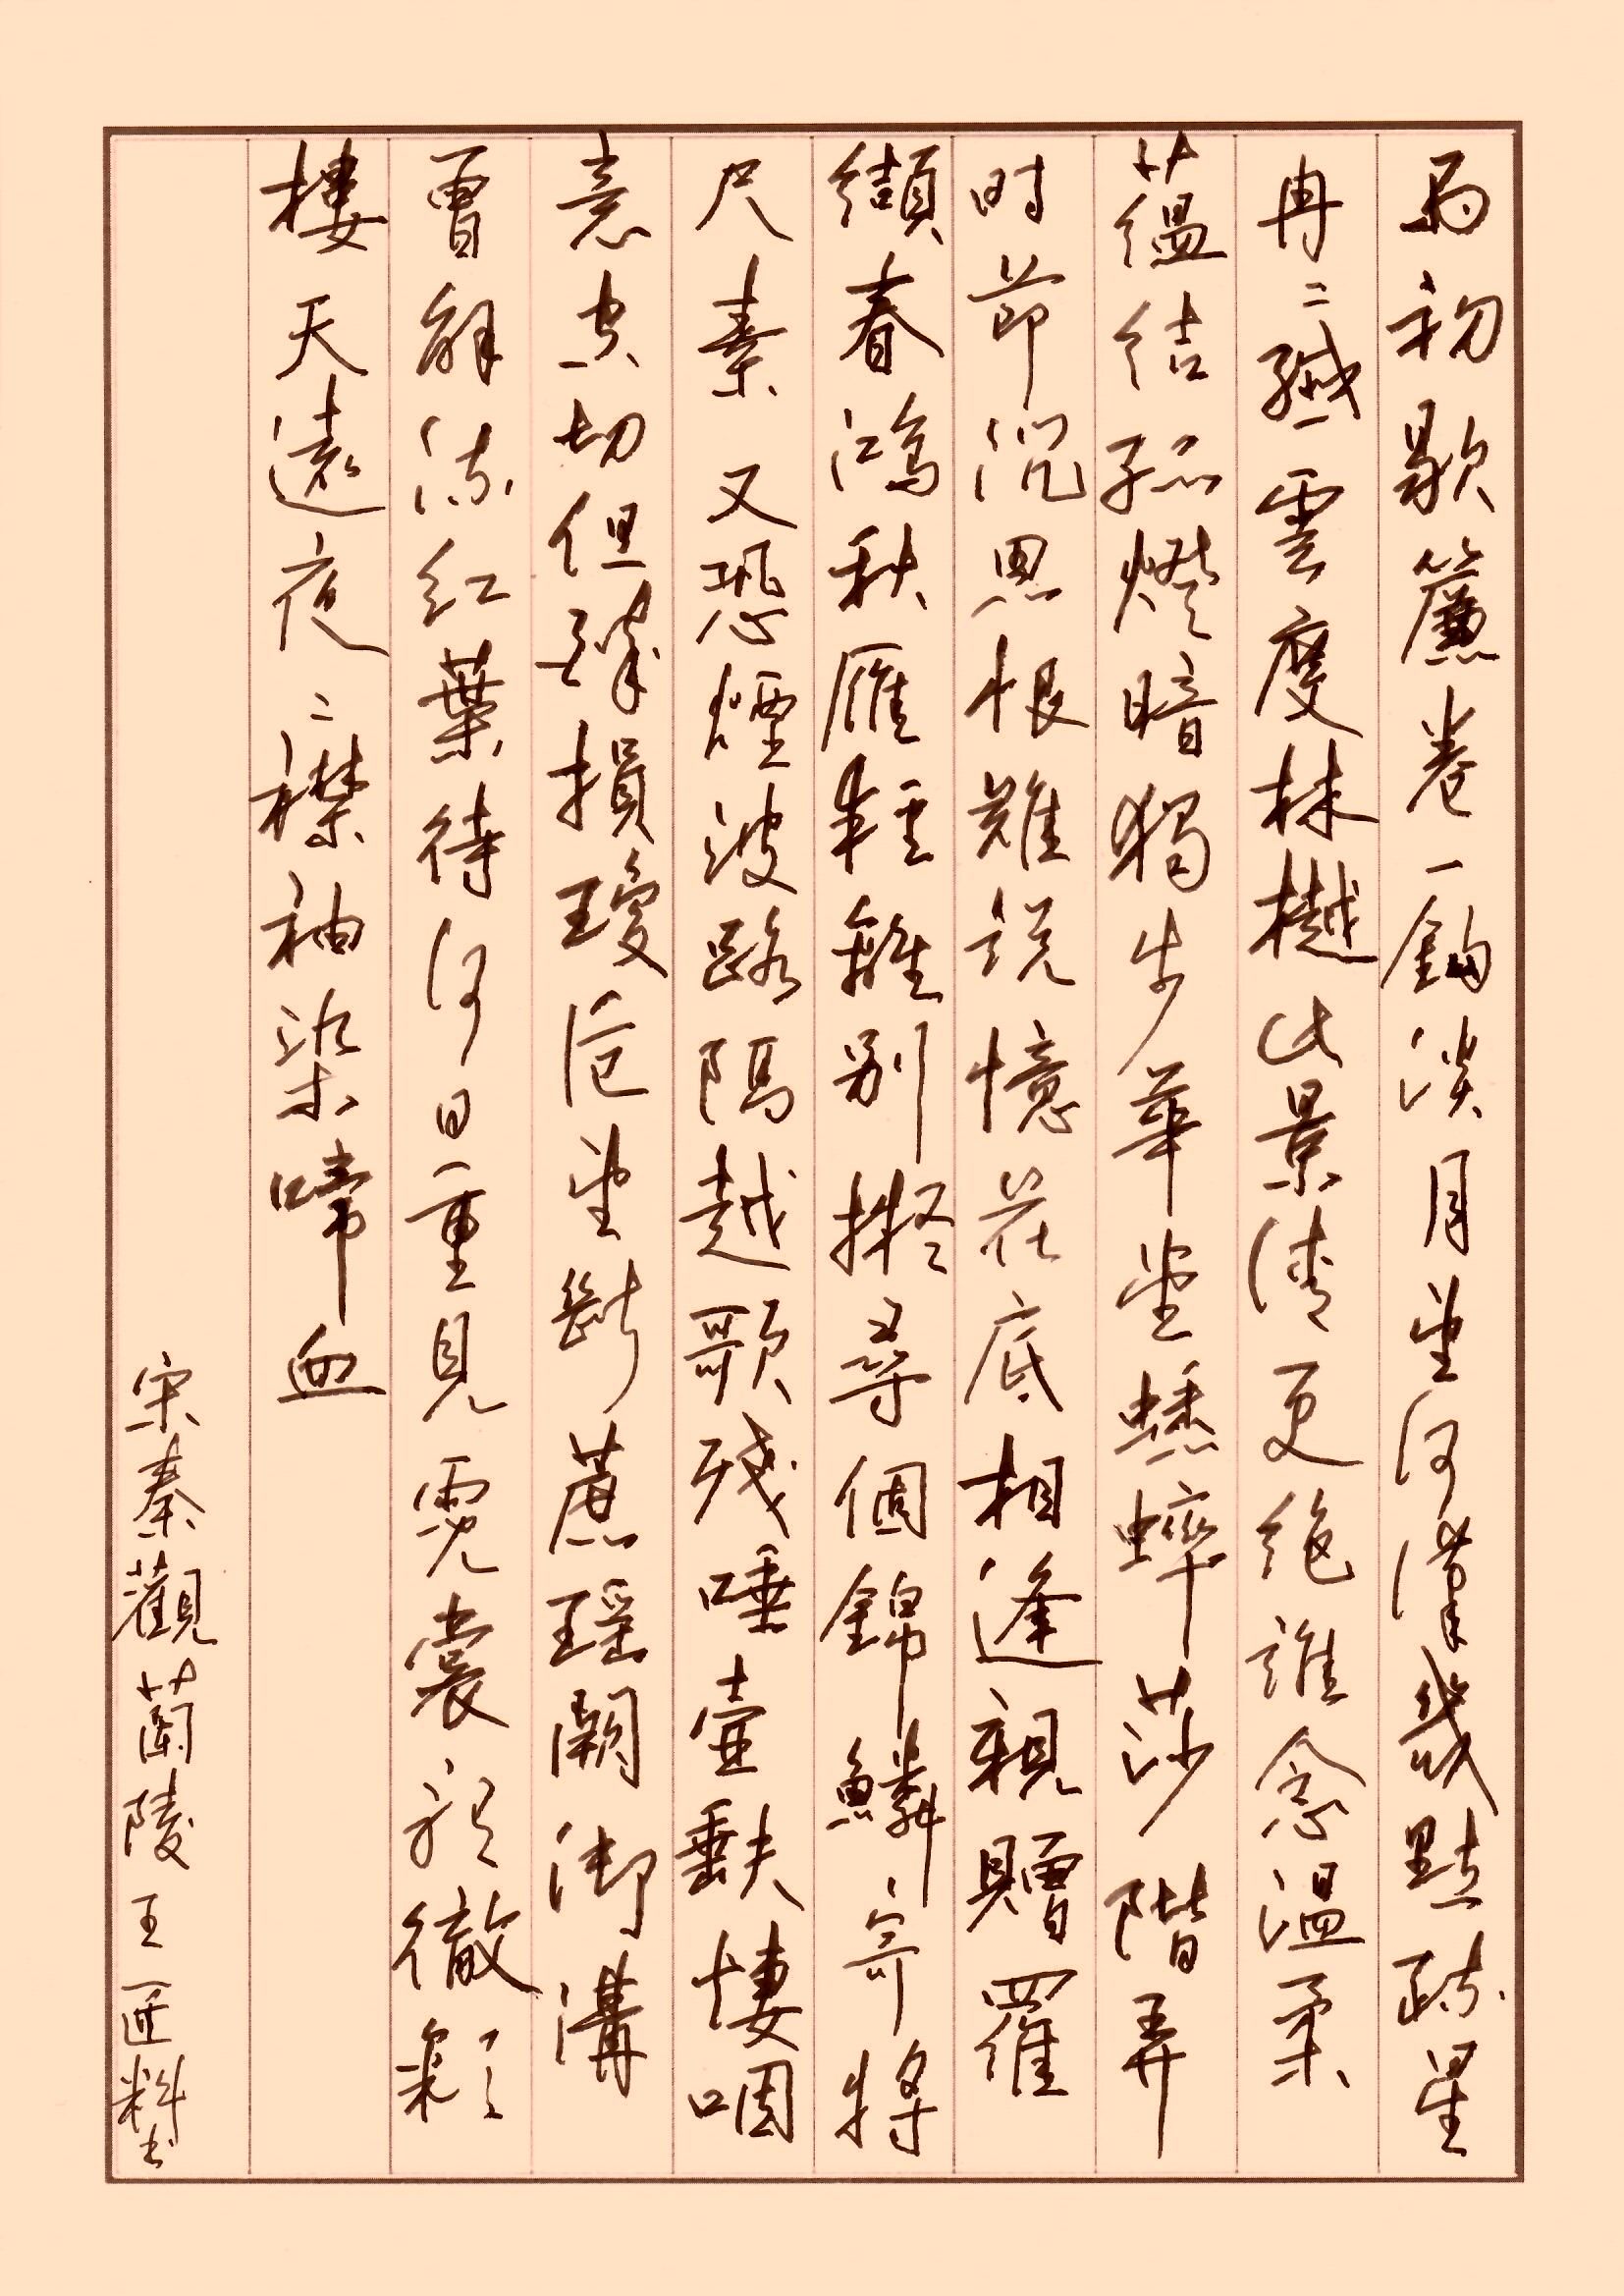 雨初歇簾卷一鈎淡月望河漢幾點疏星
冉〻纖雲度林樾此景清更絕誰念溫柔
蘊結孤燈暗獨步華堂蟋蟀莎階弄
時節沉思恨難說憶花底相逢親贈羅
纈春鴻秋雁輕離別擬尋個錦鱗寄將
尺素又恐煙波路隔越歌殘唾壺缺悽咽
意空切但醉損瓊卮望斷蔗瑤闕御溝
曾解流紅葉待何日重見霓裳聽徹彩
樓天遠夜〻襟袖染啼血
宋秦觀蘭陵王 匠料书